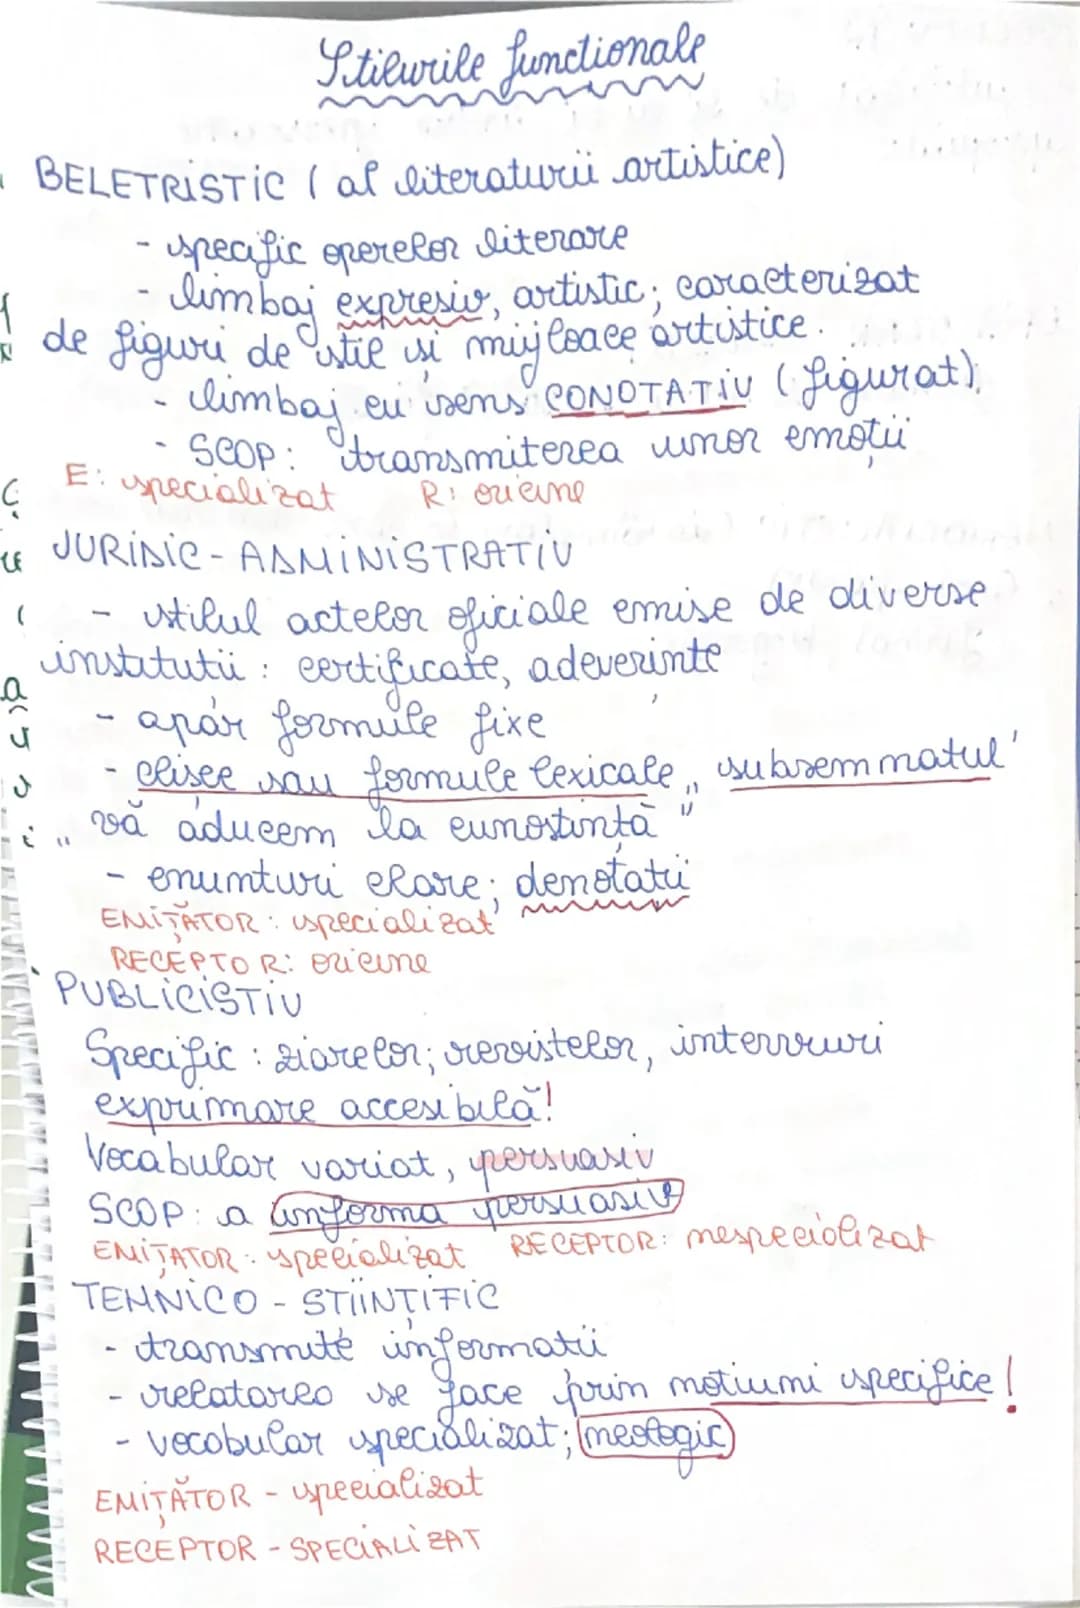 Stilurile functionale
BELETRISTIC ( al literaturii artistice)
- specific operelor literare
- limbaj expresiv, artistic; caracterizat
de figuri de stil si mijloace artistice.
- limbaj cu sens CONOTATIV (figurat);
- SCOP: transmiterea unor emoții
E: specializat R: oricine
JURIDIC - ADMINISTRATIV
- stilul actelor oficiale emise de diverse
institutii : certificate, adeverințe
- apar formule fixe
- clisee sau formule lexicale „subsemnatul"
„vă aducem la cunostintă"
- enunturi clare; denotatii
EMIȚĂTOR : specializat
RECEPTOR: oricine
PUBLICISTIV
Specific : ziarelor; revistelor, interviuri
exprimare accesibilă!
Vocabular variat, persuasiv
SCOP: a informa persuasiv
EMIȚATOR : specializat RECEPTOR: nespecializat
TEHNICO - STIINȚIFIC
- transmite informatii
- relatarea se face prin notiuni specifice!
- vocabular specializat; neologic
EMIȚĂTOR - specializat
RECEPTOR - SPECIALIZAT